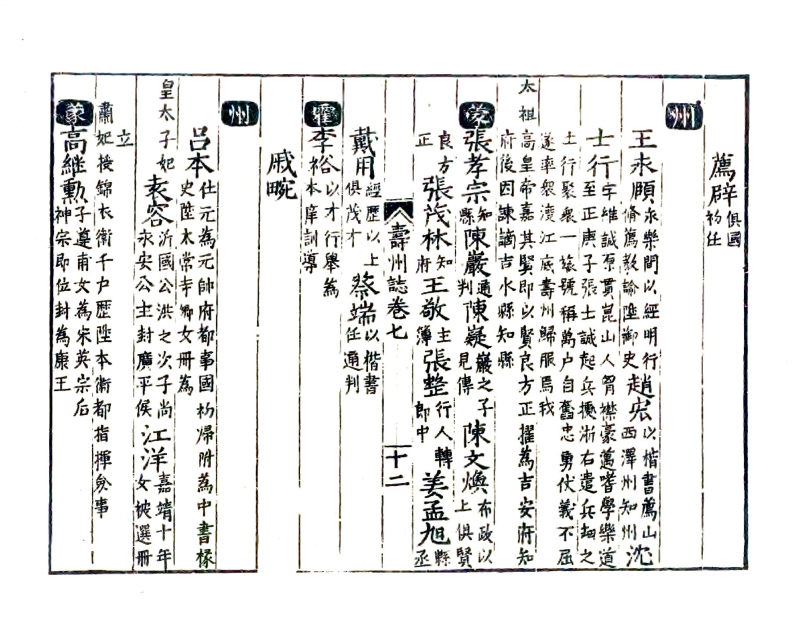 薦辟俱國初任
州
王永順永樂間以經明行脩薦教諭陞御史趙宏以楷書薦山西澤州知州沈
士行字維誠原貫崑山人胷襟豪萬嗜學樂道至正庚子張士誠起兵擾浙右遣兵刼之
士行聚衆一旅號稱萬户自舊忠勇仗義不屈遂率衆渡江底壽州歸服焉我
太祖高皇帝嘉其賢即以賢良方正擢為吉安府知府後因諫謫吉水縣知縣
蒙張孝宗知縣陳巖通判陳嶷巖之子見傳陳文煥布政以上俱賢
良方正張茂林知府王敬主簿張整行人轉郎中姜孟旭縣丞
壽州誌卷七 十二
戴用經歷以上俱茂才蔡端以楷書任通判
霍李裕以才行舉為本庠訓導
戚畹
州
吕本仕元為元帥府都事國初歸附為中書椽史陞太常寺卿女冊為
皇太子妃袁容沂國公洪之次子尚永安公主封廣平侯江洋嘉靖十年女被選冊
立肅妃授錦衣衛千户歷陞本衛都指揮僉事
蒙高維勳子遵甫女為宋英宗后神宗即位封為康王